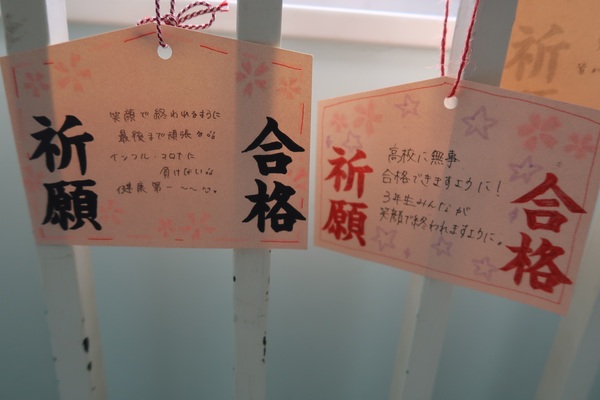 合格
祈願
笑顔で終われるように
最後まで頑張
インフル・コロナに
負けないな
健康第一
合格
祈願
高校に無事
合格できますように！
3年生みんなが
笑顔で終われますように。
祈